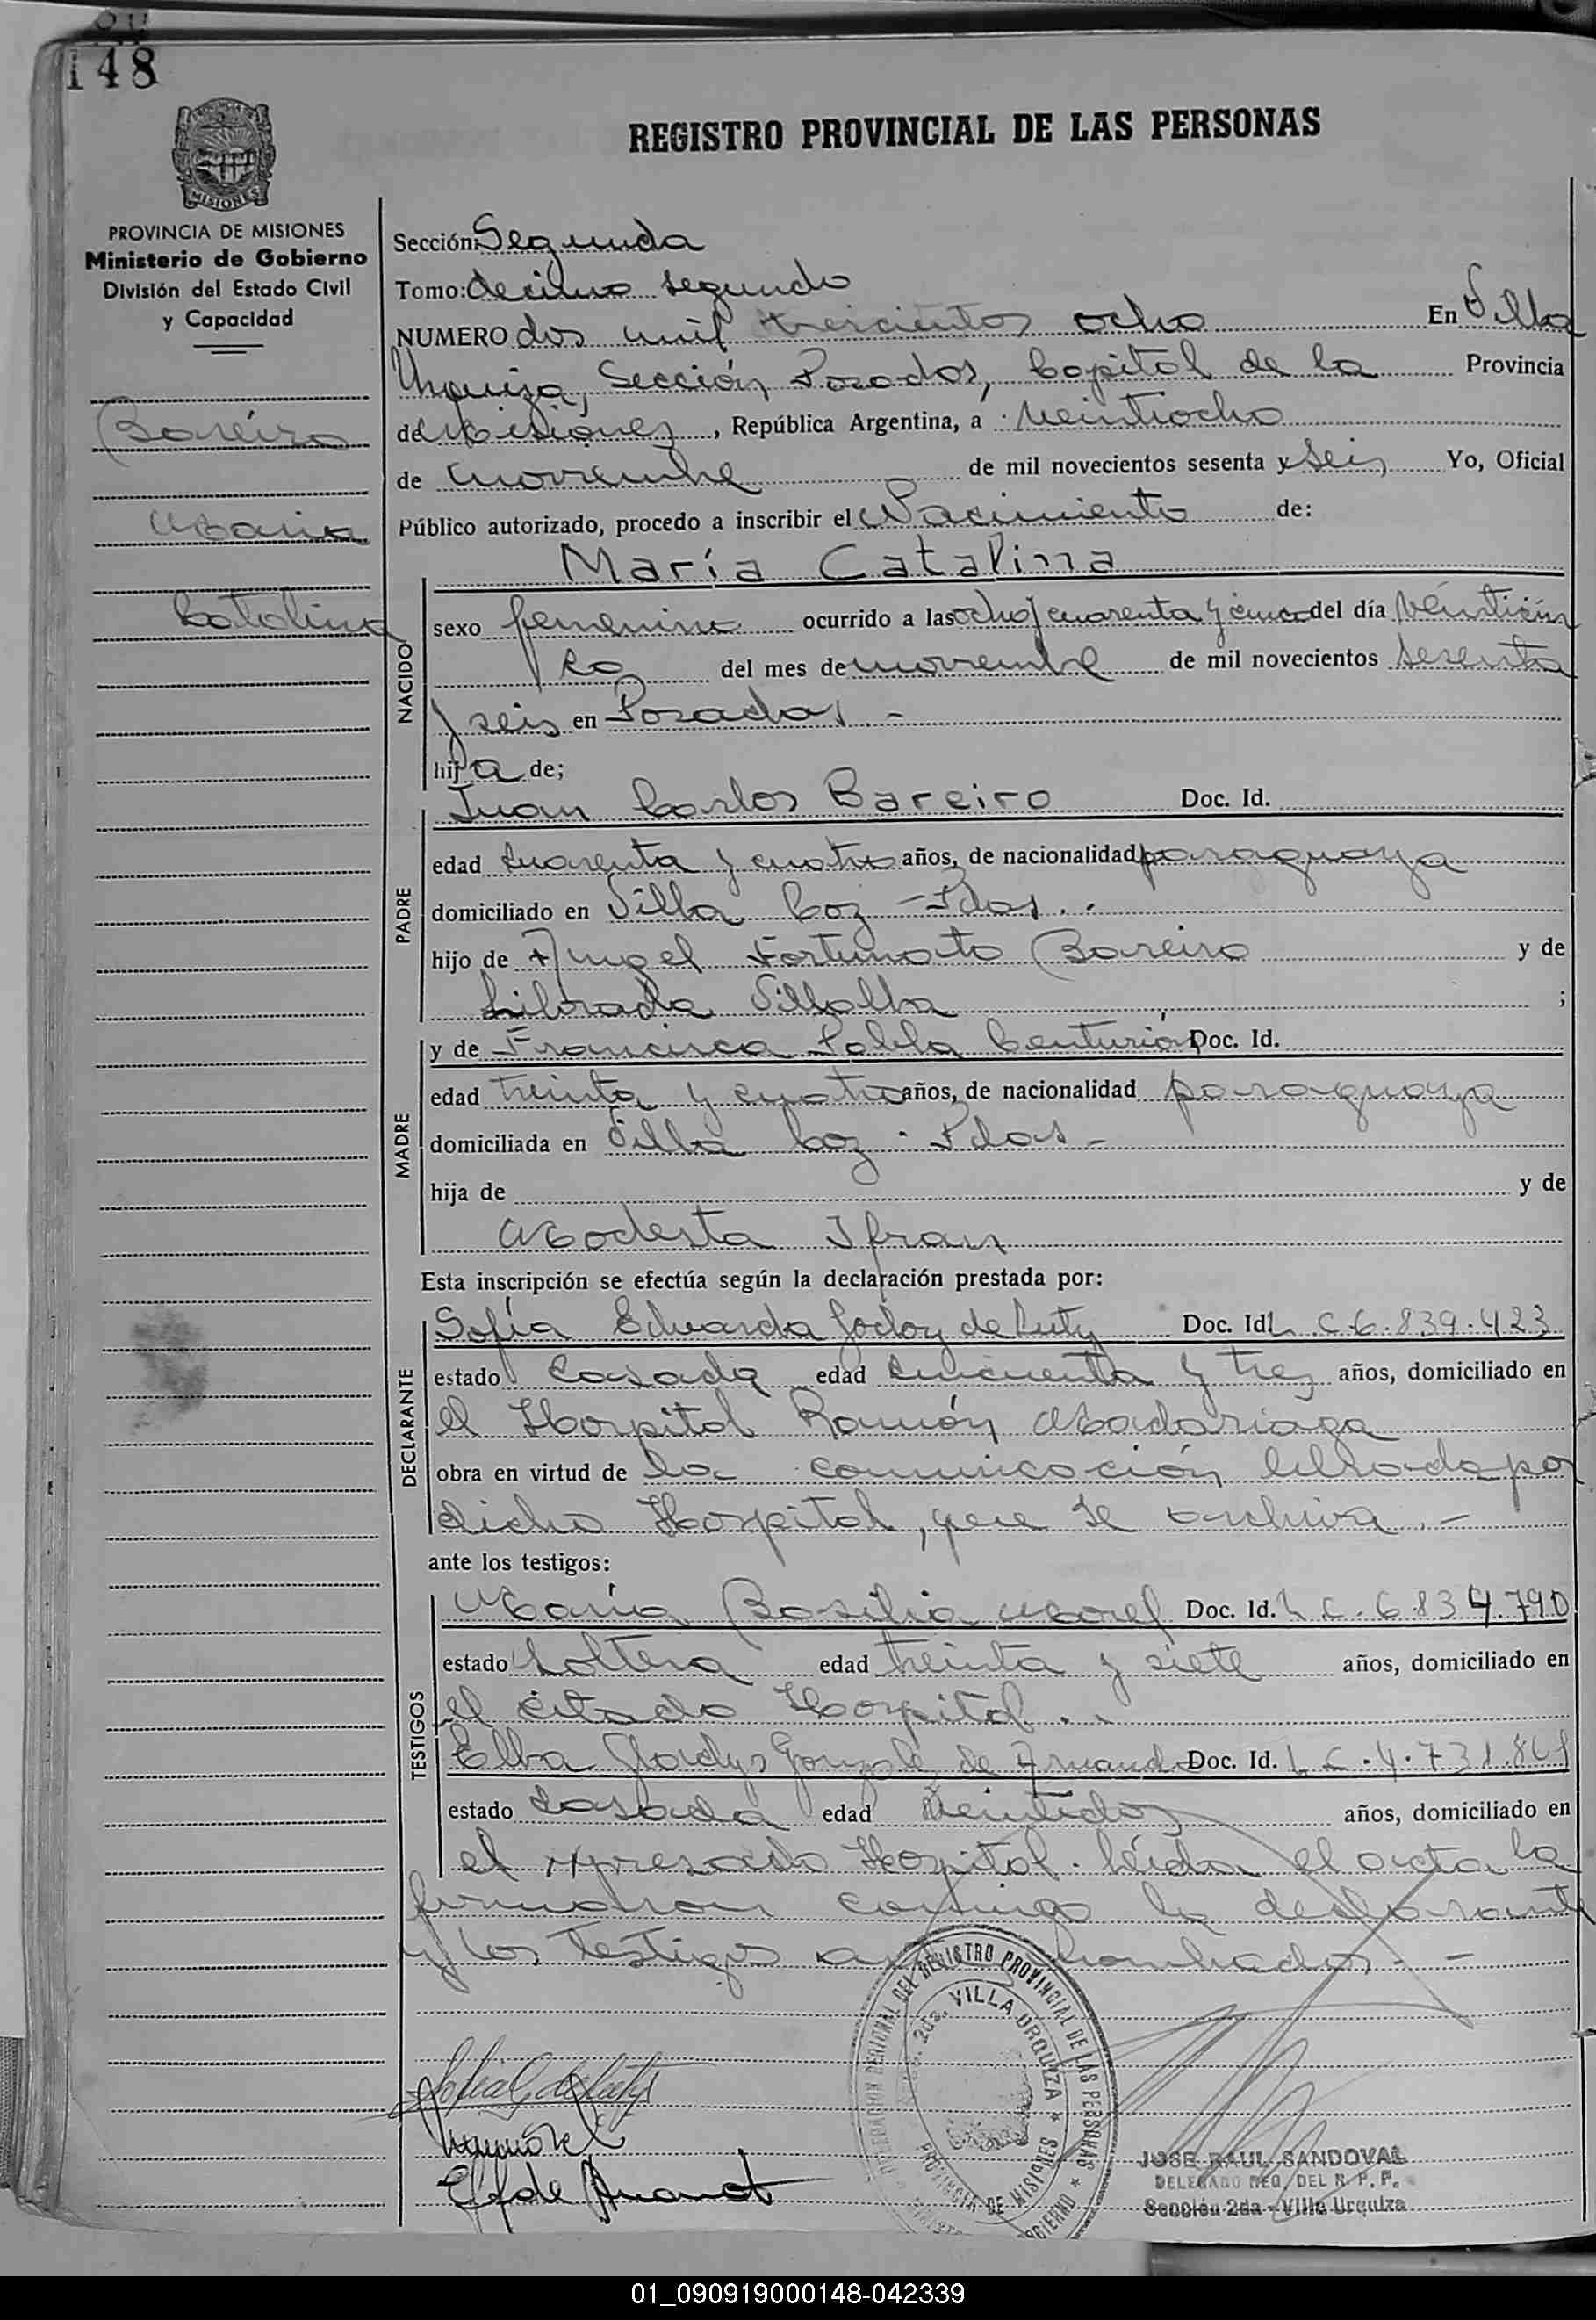 148
REGISTRO PROVINCIAL DE LAS PERSONAS
MISIONES
PROVINCIA DE MISIONES
Ministerio de Gobierno
División del Estado Civil
y Capacidad
Bareiro
Maria
Catalina
Sección: Segunda
Tomo: decimo segundo
NUMERO dos mil trescientos ocho En Villa
Urquiza, Sección Posadas, Capital de la Provincia
de Misiones, República Argentina, a veintiocho
de noviembre de mil novecientos sesenta y seis Yo, Oficial
Público autorizado, procedo a inscribir el Nacimiento de:
María Catalina
NACIDO
sexo femenino ocurrido a las ocho y cuarenta y cinco del día veinticin
co del mes de noviembre de mil novecientos sesenta
y seis en Posadas -
hija de;
PADRE
Juan Carlos Bareiro Doc. Id.
edad cuarenta y cuatro años, de nacionalidad paraguaya
domiciliado en Villa Coz - Pdas. .
hijo de Angel Fortunato Bareiro y de
Librada Villalba ;
MADRE
y de Francisca Pabla Centurión Doc. Id.
edad treinta y cuatro años, de nacionalidad paraguaya
domiciliada en Villa Coz - Pdas -
hija de y de
Modesta Ifran
Esta inscripción se efectúa según la declaración prestada por:
DECLARANTE
Sofía Eduarda Godoy de Luty Doc. Id. L.C.6.839.423
estado casada edad cincuenta y tres años, domiciliado en
el Hospital Ramón Madariaga
obra en virtud de la comunicación librada por
dicho Hospital, que se archiva. -
ante los testigos:
TESTIGOS
María Basilia Morel Doc. Id. L.C.6.834.790
estado soltera edad treinta y siete años, domiciliado en
el citado Hospital. .
Elba Gladys de Doc. Id. L.C.4.731.861
estado casada edad veintidos años, domiciliado en
el expresado Hospital. Leída el acta la
firmaron conmigo la declarante
y los testigos nombrados. -
DELEGACION REGIONAL DEL REGISTRO PROVINCIAL DE LAS PERSONAS
2da. VILLA URQUIZA
PROVINCIA DE MISIONES
JOSE RAUL SANDOVAL
DELEGADO REG. DEL R. P. P.
Sección 2da - Villa Urquiza
01_090919000148-042339